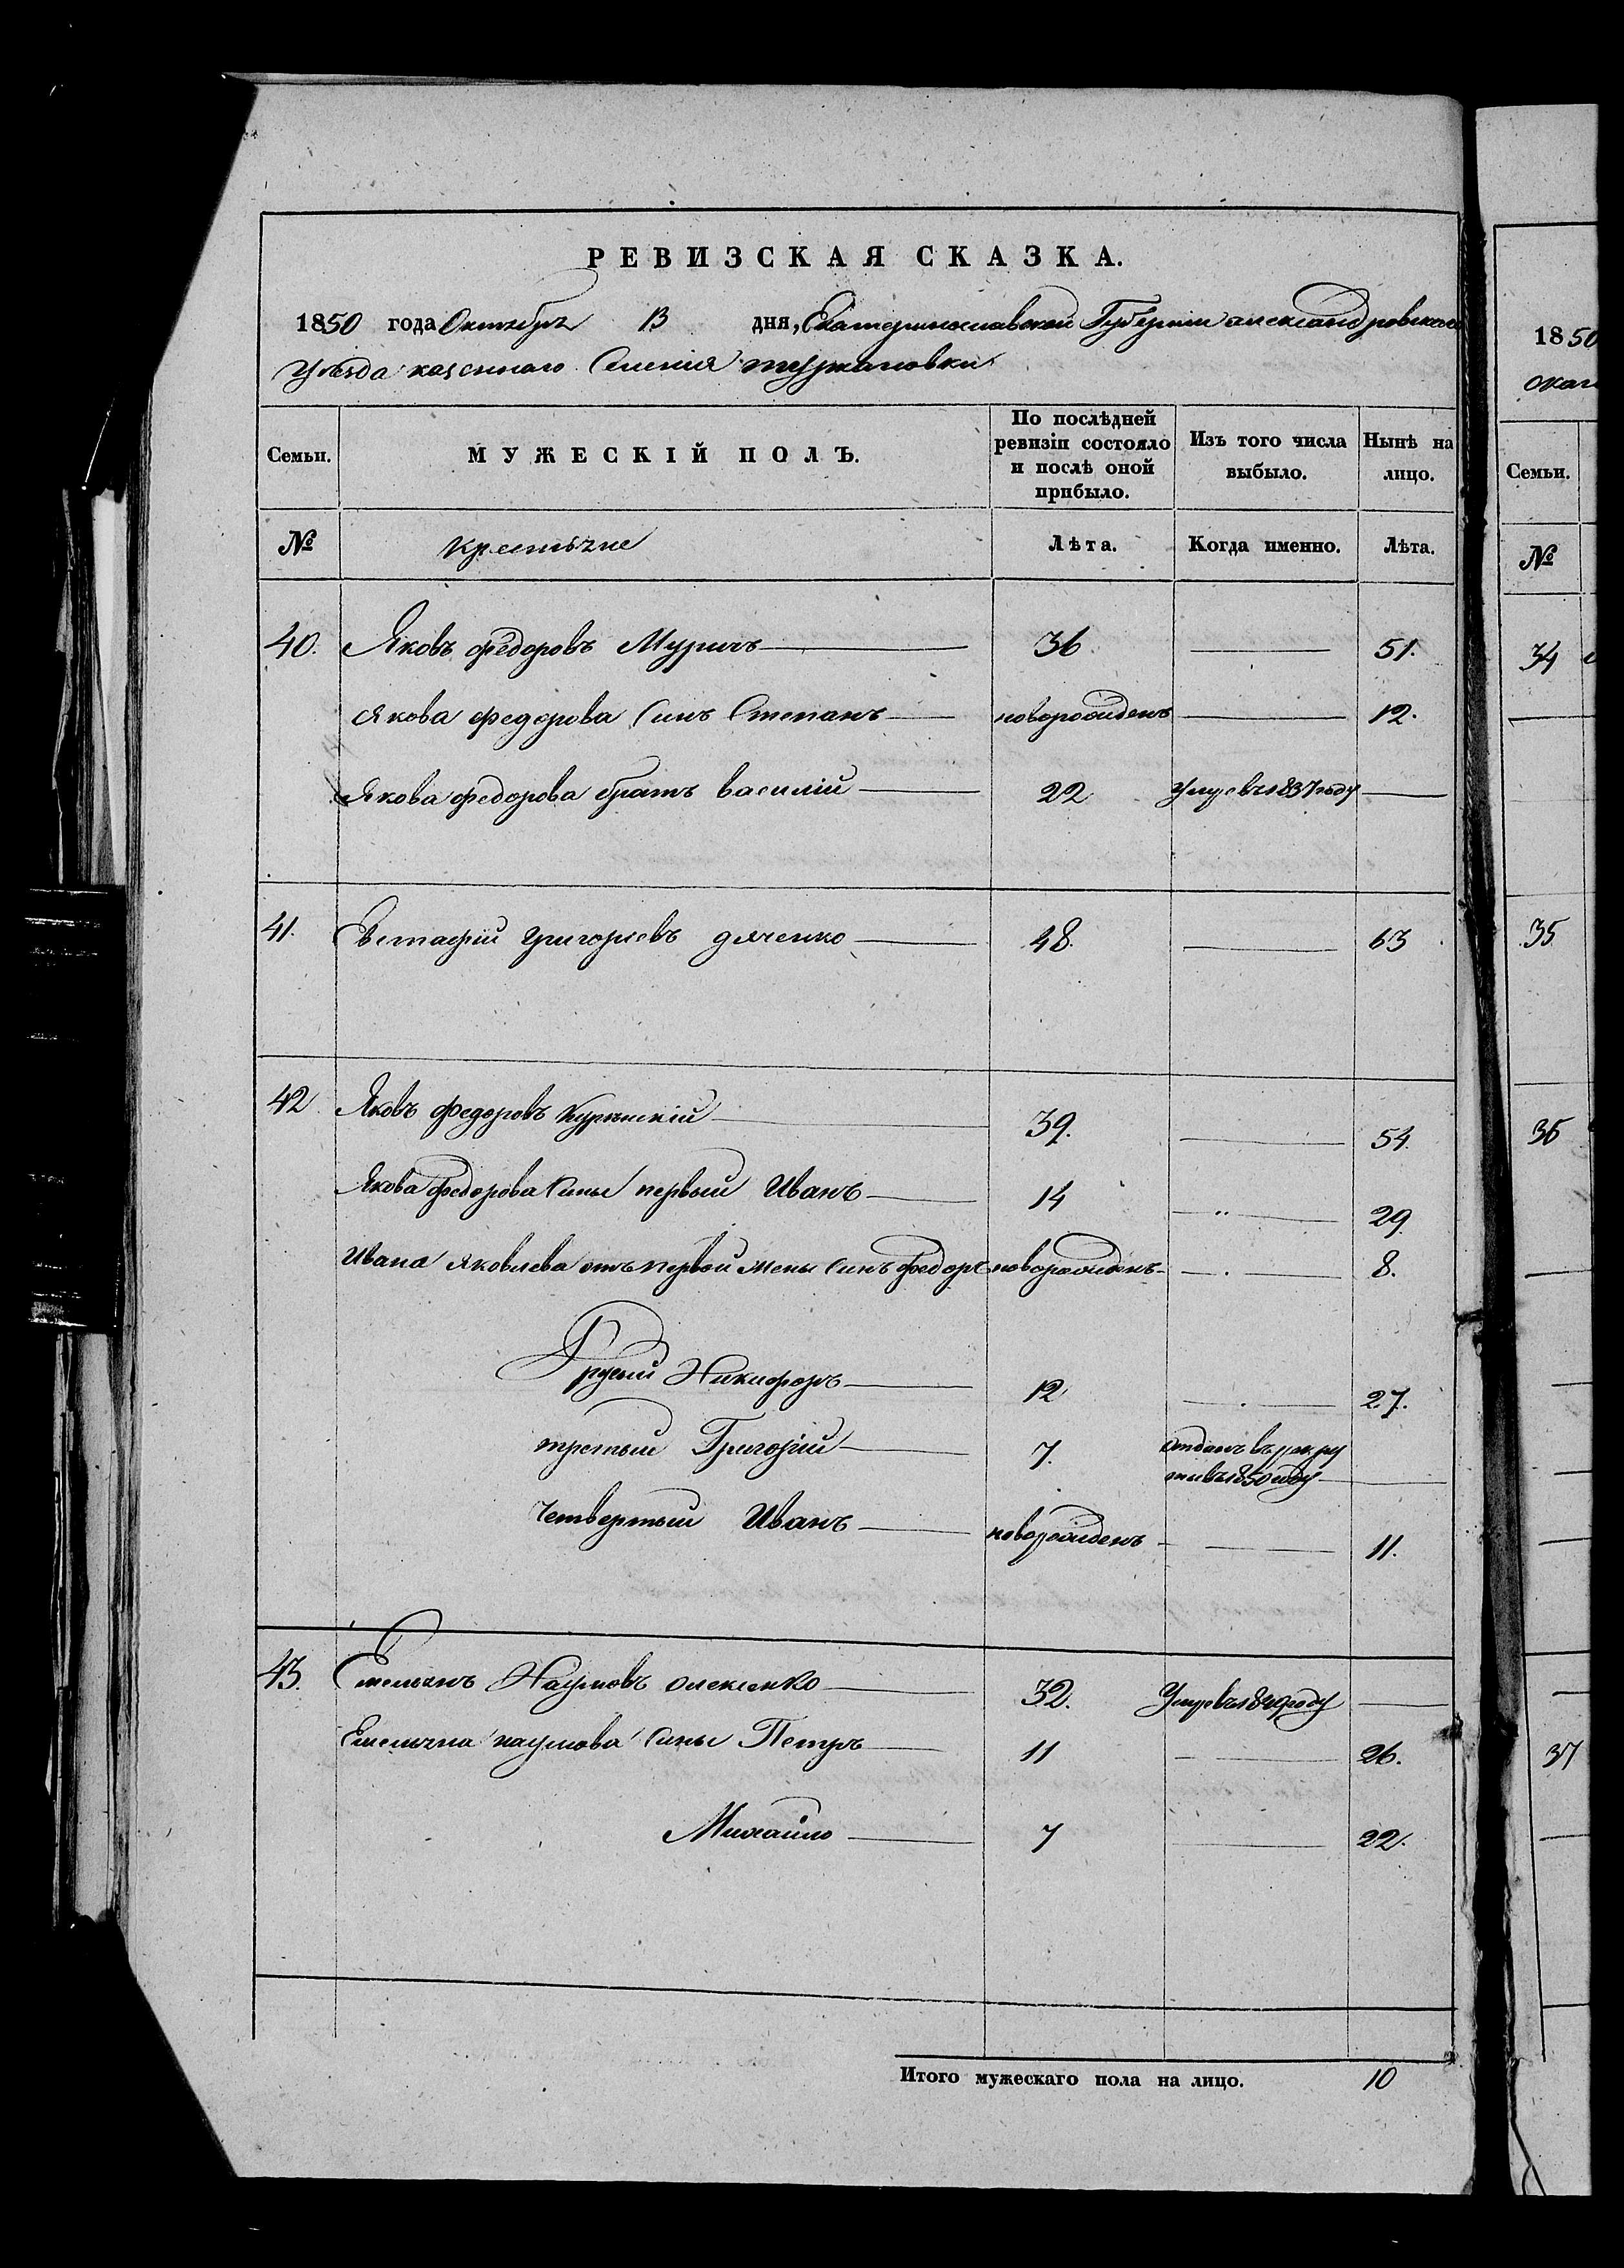 РЕВИЗСКАЯ СКАЗКА.
1850 года Октября 13 дня, Екатеринославской Губернии александровского
уѣзда казенного Селенія
Семьи. МУЖЕСКІЙ ПОЛЪ. По послѣдней ревизіи состояло и послѣ оной прибыло. Изъ того числа выбыло. Нынѣ на лицо.
№ Крестьяне Лѣта. Когда именно. Лѣта.
40. Яковъ федоровъ 36 51.
Якова федорова Синъ Степанъ новорожденъ 12.
Якова федорова братъ василій 22 Умре въ 1837 году
41. Евстафій Григорьевъ дяченко 48. 63
42 Яковъ федоровъ 39. 54.
Якова федорова Сины первый Иванъ 14 29.
Ивана Яковлева отъ первой жены Синъ федоръ новорожденъ 8.
Другий Никифоръ 12 27.
третый Григорій 7. Отданъ въ рекру
ты въ 1850 году
Четвертый Иванъ новорожденъ 11.
43. Емельянъ Наумовъ олексенко 32. Умре въ 1849 году
Емельяна наумова Сины Петръ 11 26.
Михайло 7 22.
Итого мужескаго пола на лицо. 10
1850
Семьи.
№
34
35
36
37